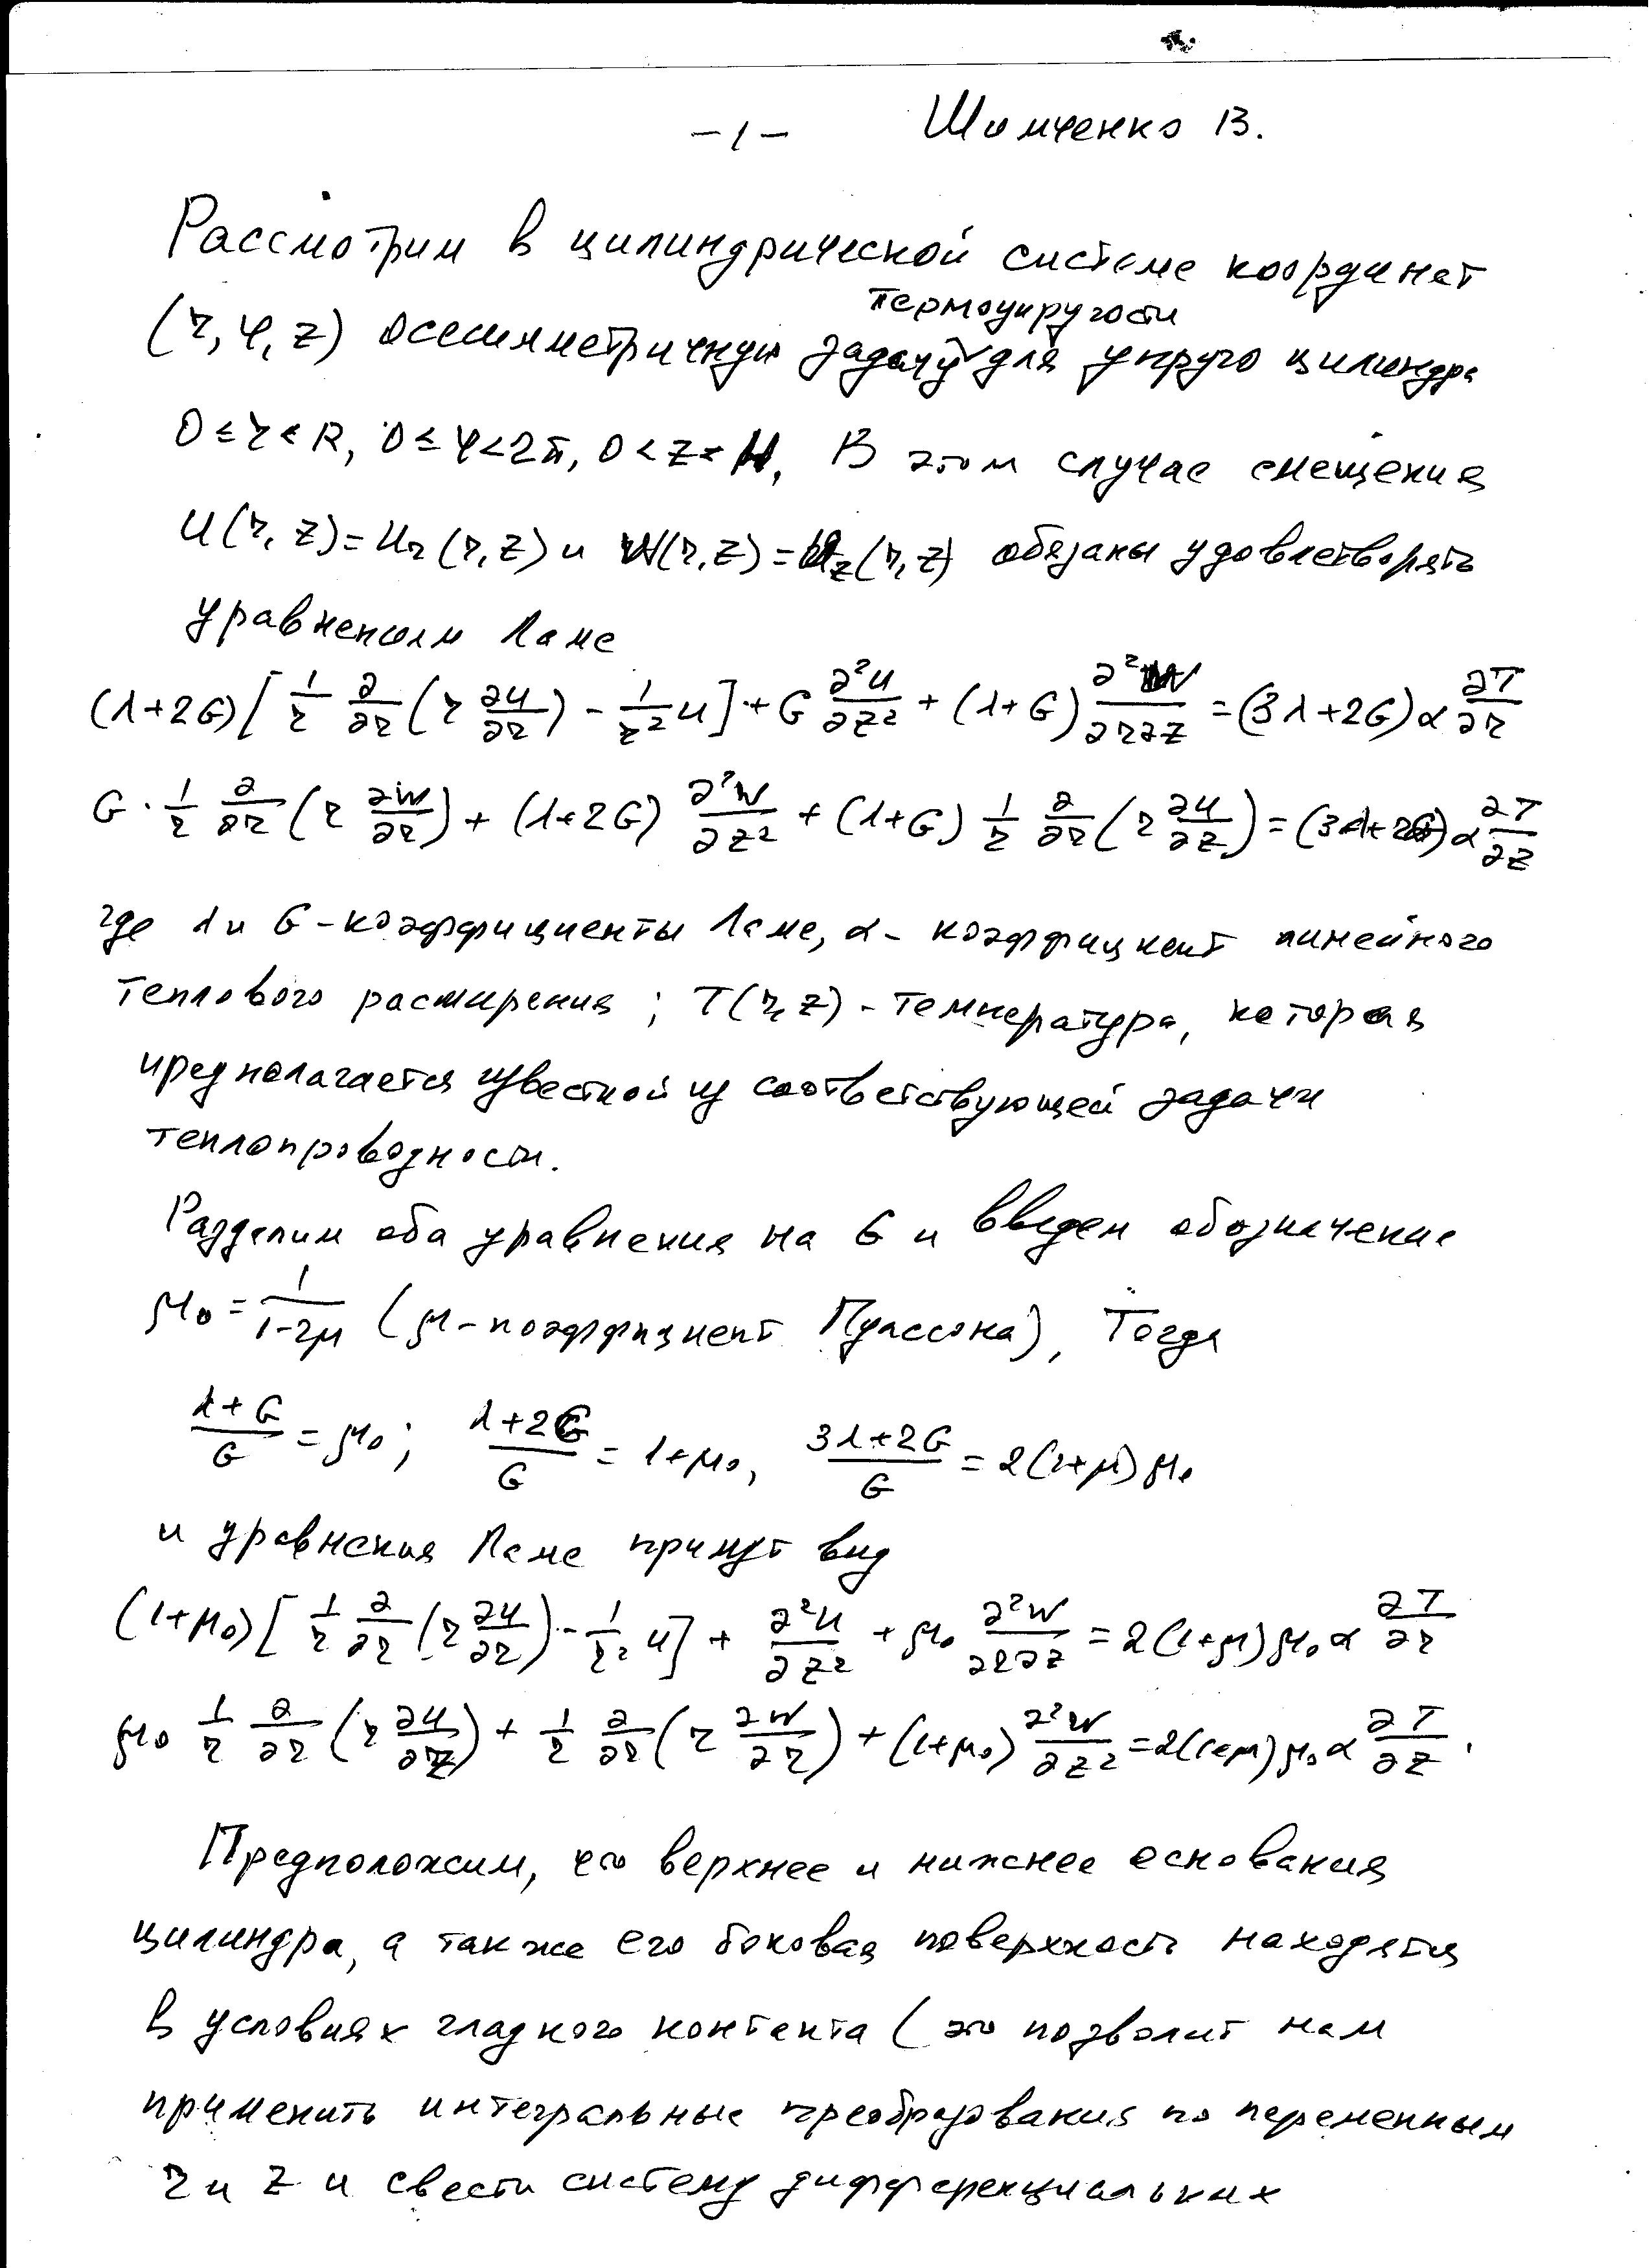 -1- Шимченко В.
Рассмотрим в цилиндрической системе координат
(r, φ, z) осесимметричную задачу термоупругости для упруго цилиндра
0 ≤ r < R, 0 ≤ φ < 2π, 0 < z < H. В этом случае смещения
U(r, z) = U_r(r, z) и W(r, z) = U_z(r, z) обязаны удовлетворять
уравнениям Ламе
(λ+2G)[1/r ∂/∂r (r ∂U/∂r) - 1/r² U] + G ∂²U/∂z² + (λ+G) ∂²W/∂r∂z = (3λ+2G) α ∂T/∂r
G · 1/r ∂/∂r (r ∂W/∂r) + (λ+2G) ∂²W/∂z² + (λ+G) 1/r ∂/∂r (r ∂U/∂z) = (3λ+2G) α ∂T/∂z
где λ и G - коэффициенты Ламе, α - коэффициент линейного
теплового расширения; T(r, z) - температура, которая
предполагается известной из соответствующей задачи
теплопроводности.
Разделим оба уравнения на G и введем обозначение
μ₀ = 1/(1-2μ) (μ - коэффициент Пуассона), Тогда
(λ+G)/G = μ₀; (λ+2G)/G = 1+μ₀, (3λ+2G)/G = 2(1+μ)μ₀
и уравнения Ламе примут вид
(1+μ₀)[1/r ∂/∂r (r ∂U/∂r) - 1/r² U] + ∂²U/∂z² + μ₀ ∂²W/∂r∂z = 2(1+μ)μ₀ α ∂T/∂r
μ₀ 1/r ∂/∂r (r ∂U/∂z) + 1/r ∂/∂r (r ∂W/∂r) + (1+μ₀) ∂²W/∂z² = 2(1+μ)μ₀ α ∂T/∂z.
Предположим, что верхнее и нижнее основания
цилиндра, а также его боковая поверхность находятся
в условиях гладкого контакта (это позволит нам
применить интегральные преобразования по переменным
r и z и свести систему дифференциальных